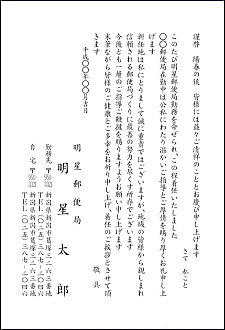 謹啓　陽春の候　皆様には益々ご清祥のこととお慶び申し上げます
さて　私こと
このたび明星郵便局勤務を命ぜられ、この程着任いたしました
〇〇郵便局在勤中は公私にわたり温かいご指導とご厚情を賜り厚くお礼申し上
げます
新任地は私にとりまして誠に重責ではございますが、地域の皆様から親しまれ
信頼される郵便局づくりに最善の努力を尽くす所存でございます
今後とも一層のご指導ご鞭撻を賜りますようお願い申し上げます
末筆ながら皆様のご健康とご多幸をお祈り申し上げ、着任のご挨拶とさせて頂
きます
敬具
平成〇〇年〇〇月吉日
明星郵便局
明星太郎
勤務先　〒950-3323
新潟県新潟市葛塚三一六三番地
ＴＥＬ（〇二五）三八七-二〇四六
自　宅　〒950-3323
新潟市葛塚三一六三番地
ＴＥＬ（〇二五）三八七-二〇四六